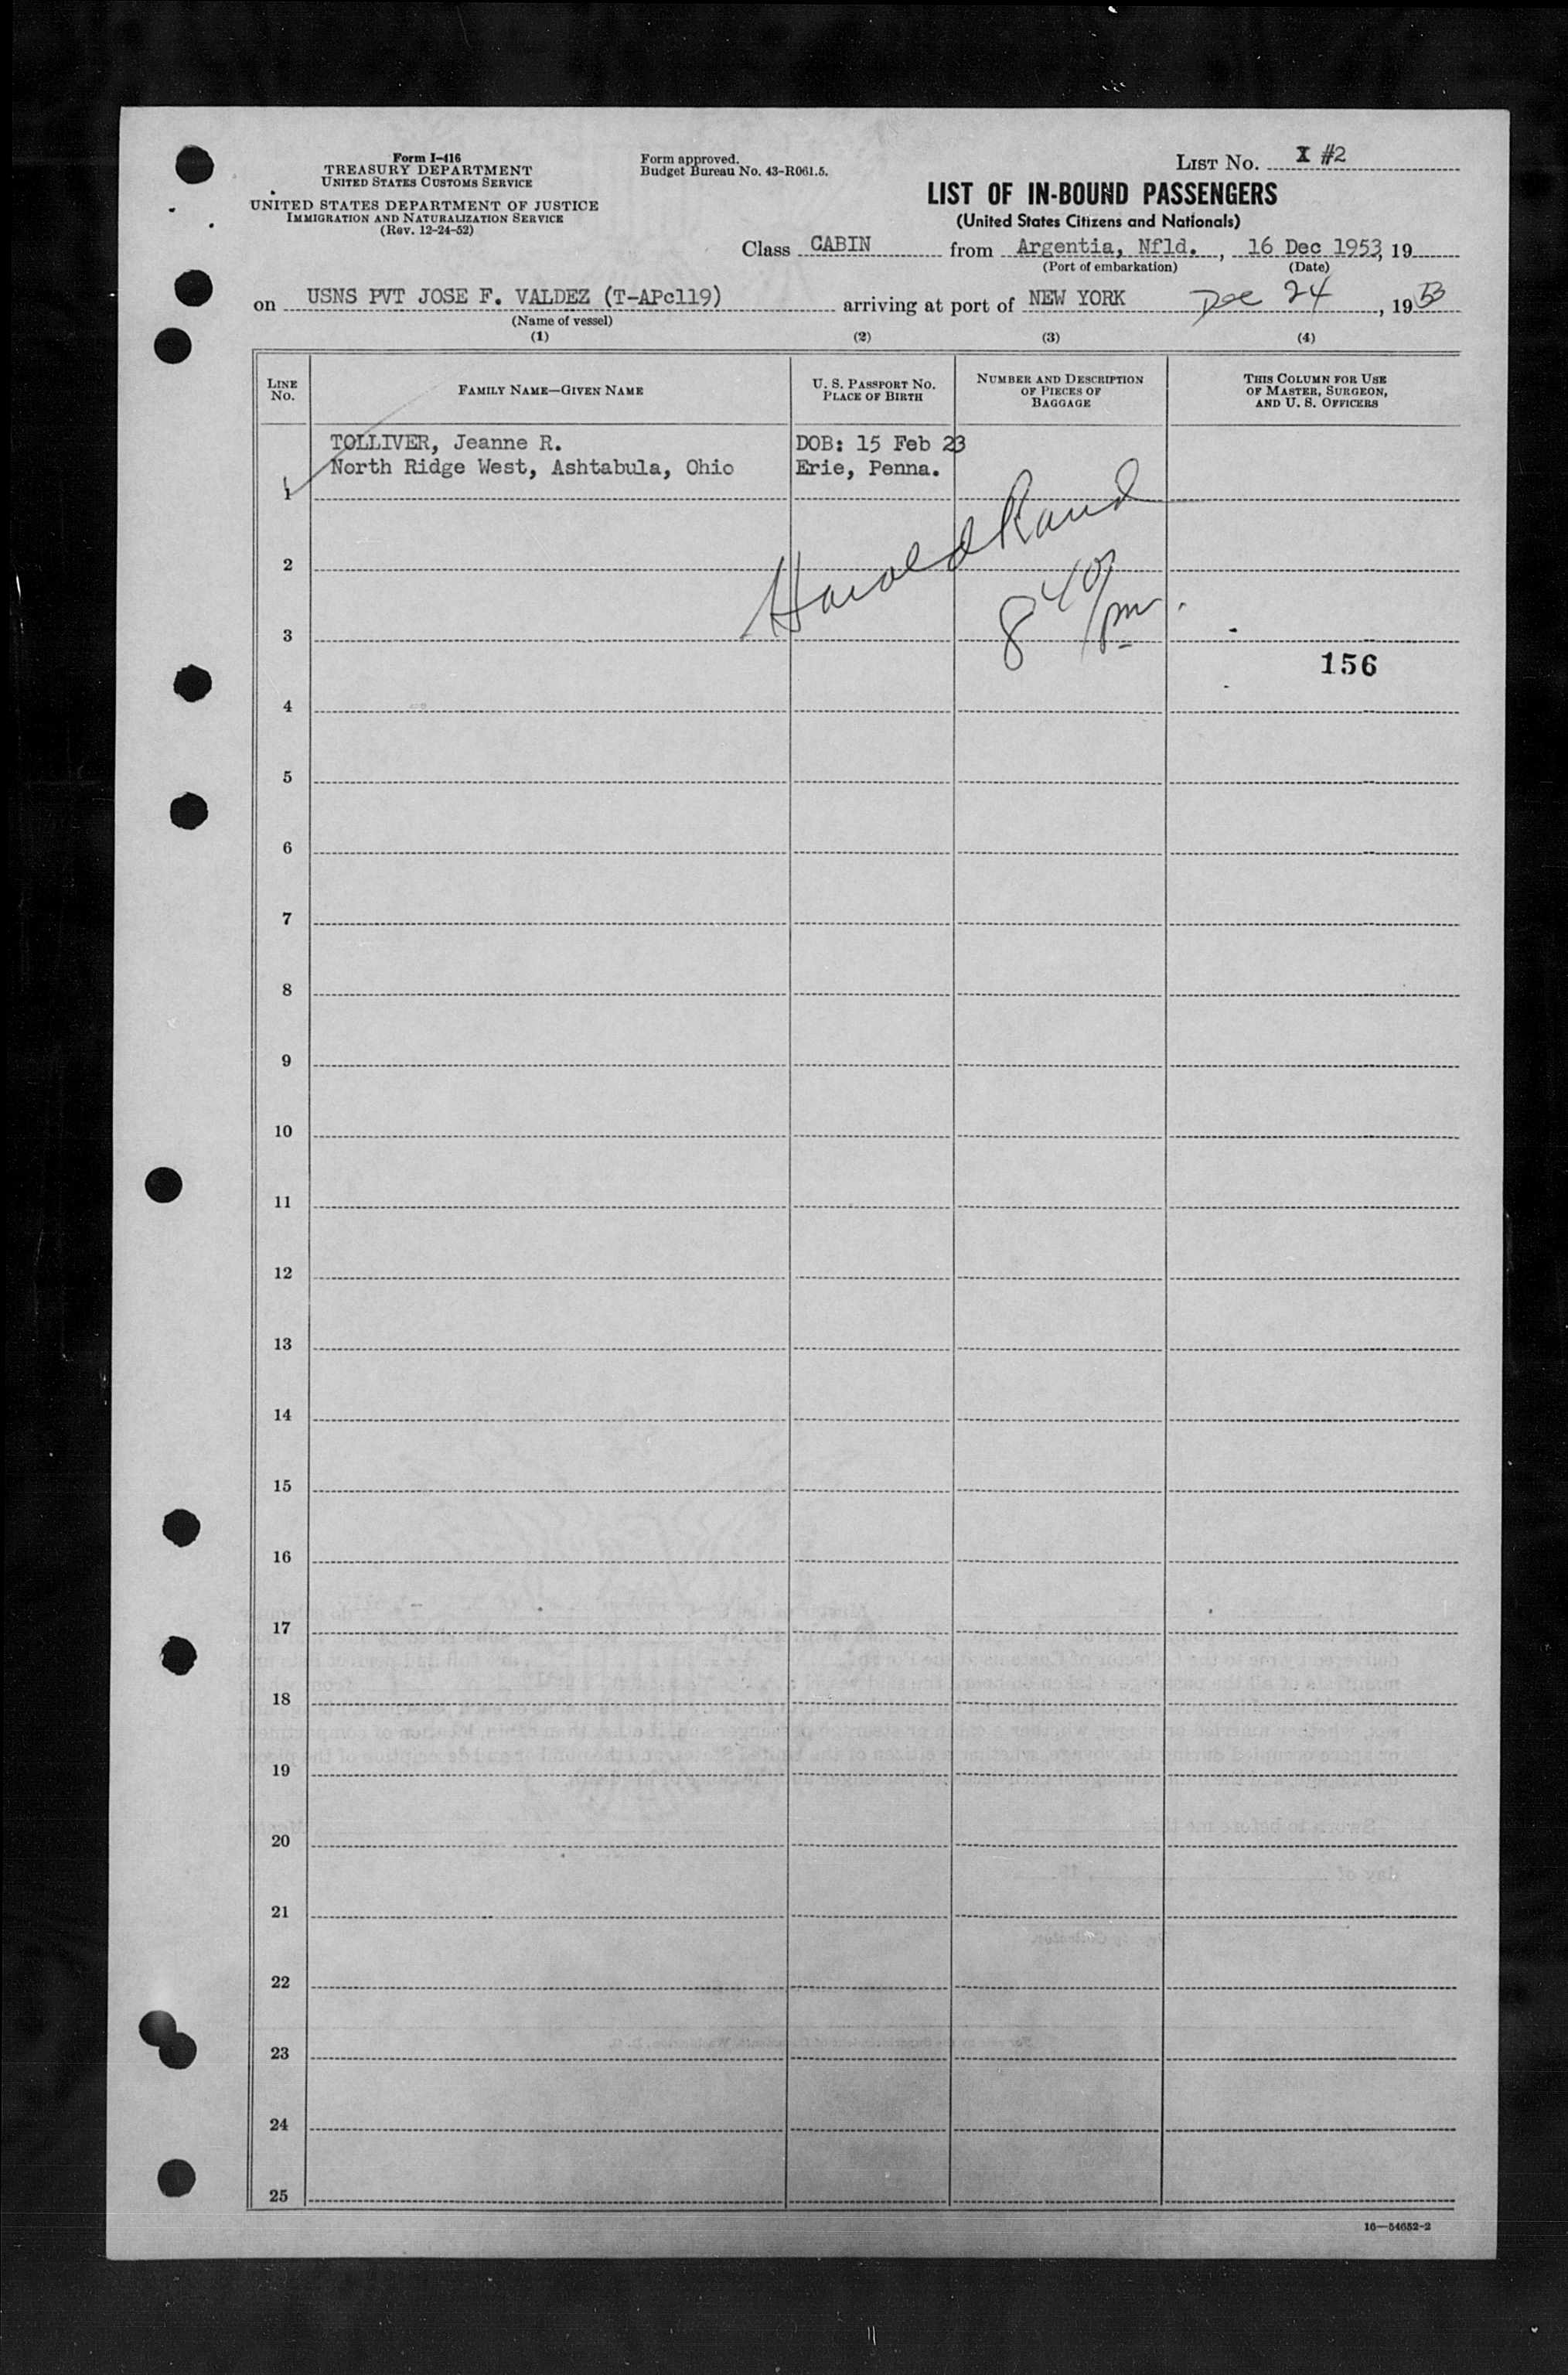 Form I-416
TREASURY DEPARTMENT
UNITED STATES CUSTOMS SERVICE
UNITED STATES DEPARTMENT OF JUSTICE
IMMIGRATION AND NATURALIZATION SERVICE
(Rev. 12-24-52)
Form approved.
Budget Bureau No. 43-R061.5.
LIST NO. I #2
LIST OF IN-BOUND PASSENGERS
(United States Citizens and Nationals)
Class CABIN from Argentia, Nfld., 16 Dec 1953, 19
(Port of embarkation) (Date)
on USNS PVT JOSE F. VALDEZ (T-APc119) arriving at port of NEW YORK Dec 24, 1953
(Name of vessel)
(1) (2) (3) (4)
LINE NO. FAMILY NAME—GIVEN NAME U. S. PASSPORT NO. PLACE OF BIRTH NUMBER AND DESCRIPTION OF PIECES OF BAGGAGE THIS COLUMN FOR USE OF MASTER, SURGEON, AND U. S. OFFICERS
TOLLIVER, Jeanne R. DOB: 15 Feb 23
North Ridge West, Ashtabula, Ohio Erie, Penna.
1
Harold Rand
2
8 40/pm.
3
156
4
5
6
7
8
9
10
11
12
13
14
15
16
17
18
19
20
21
22
23
24
25
16—54652-2